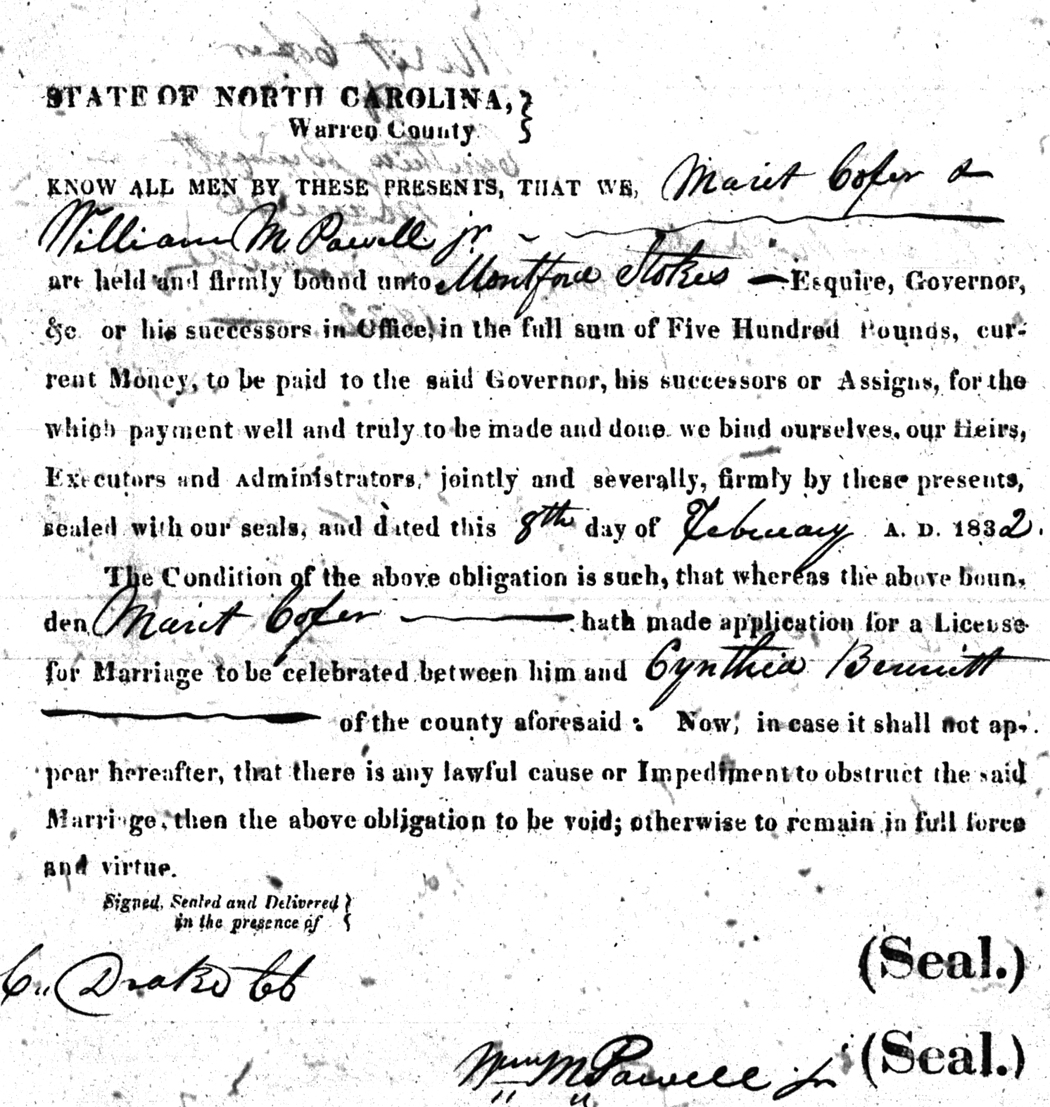 STATE OF NORTH CAROLINA,
Warren County.
KNOW ALL MEN BY THESE PRESENTS, THAT WE, Marit Cofer &
William M. Powell jr.
are held and firmly bound unto Montford Stokes — Esquire, Governor,
&c. or his successors in Office, in the full sum of Five Hundred Pounds, cur-
rent Money, to be paid to the said Governor, his successors or Assigns, for the
which payment well and truly to be made and done. we bind ourselves, our Heirs,
Executors and Administrators, jointly and severally, firmly by these presents,
sealed with our seals, and dated this 8th day of February A. D. 1832.
The Condition of the above obligation is such, that whereas the above boun,
den Marit Cofer — hath made application for a License
for Marriage to be celebrated between him and Cynthia Bennitt
of the county aforesaid : Now, in case it shall not ap-
pear hereafter, that there is any lawful cause or Impediment to obstruct the said
Marriage, then the above obligation to be void; otherwise to remain in full force
and virtue.
Signed, Sealed and Delivered
in the presence of
C. Drake
(Seal.)
Wm M. Powell jr (Seal.)